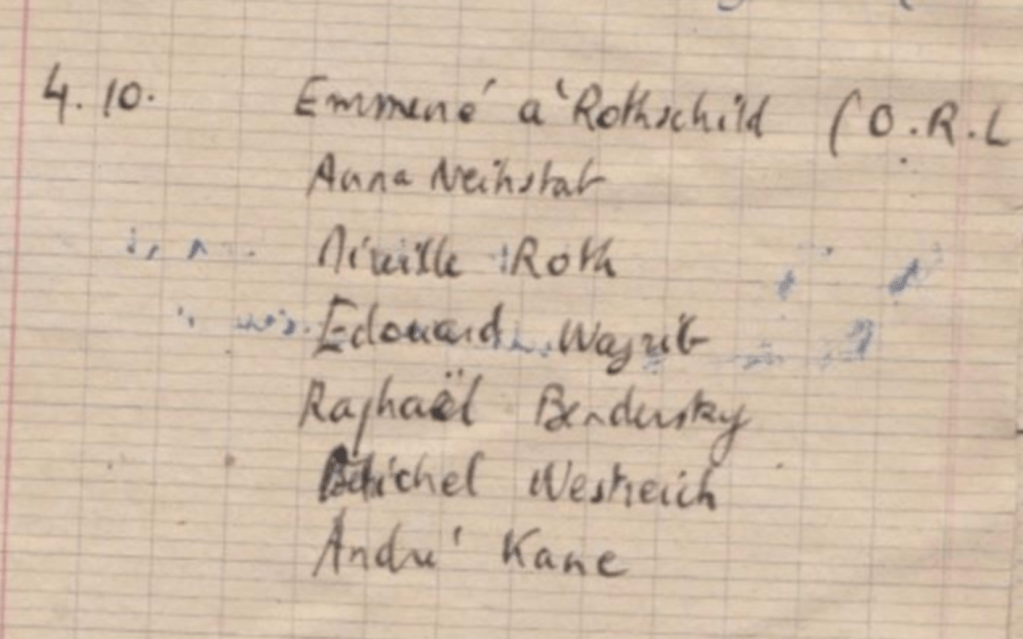 4.10. Emmené à Rothschild (O.R.L
Anna Neihstat
Mireille Roth
Edouard
Raphaël Bendersky
Michel Westreich
André Kane